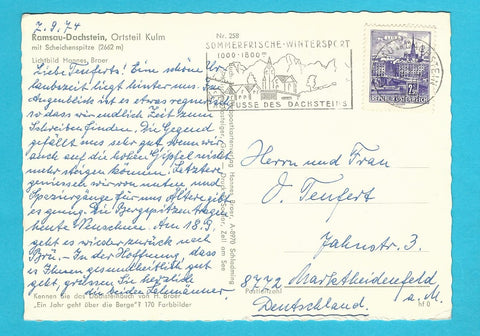 7.9.74
Ramsau-Dachstein, Ortsteil Kulm
mit Scheichenspitze (2662 m)
Lichtbild Hannes Broer
Nr. 258
SOMMERFRISCHE-WINTERSPORT
1000-1800m
FUSSE DES DACHSTEINS
REPUBLIK ÖSTERREICH
Liebe Tenferts! Eine schöne
Urlaubszeit liegt hinter uns. Im
Augenblick ist es etwas regnerisch
so dass wir endlich Zeit zum
Schreiben finden. Die Gegend
gefällt uns sehr gut, wenn wir
auch auf die hohen Gipfel nicht
mehr steigen können. Letztere
genießen wir von unten und
Spaziergänge für uns Ältere gibt
es genug. Die Bergspitzen tragen
heute Neuschnee. Am 18.9.
geht es wieder zurück nach
In der Hoffnung, dass
es Ihnen gesundheitlich gut
geht, grüssen Sie herzlich
die beiden
Kennen Sie das Dachsteinbuch von H. Broer
"Ein Jahr geht über die Berge"? 170 Farbbilder
Postkartenverlag Hannes Broer, A-8970 Schladming
Zell am See
Herrn und Frau
O. Tenfert
Jahnstr. 3
8772 Marktheidenfeld
a. M.
Postleitzahl
Deutschland
hf 0